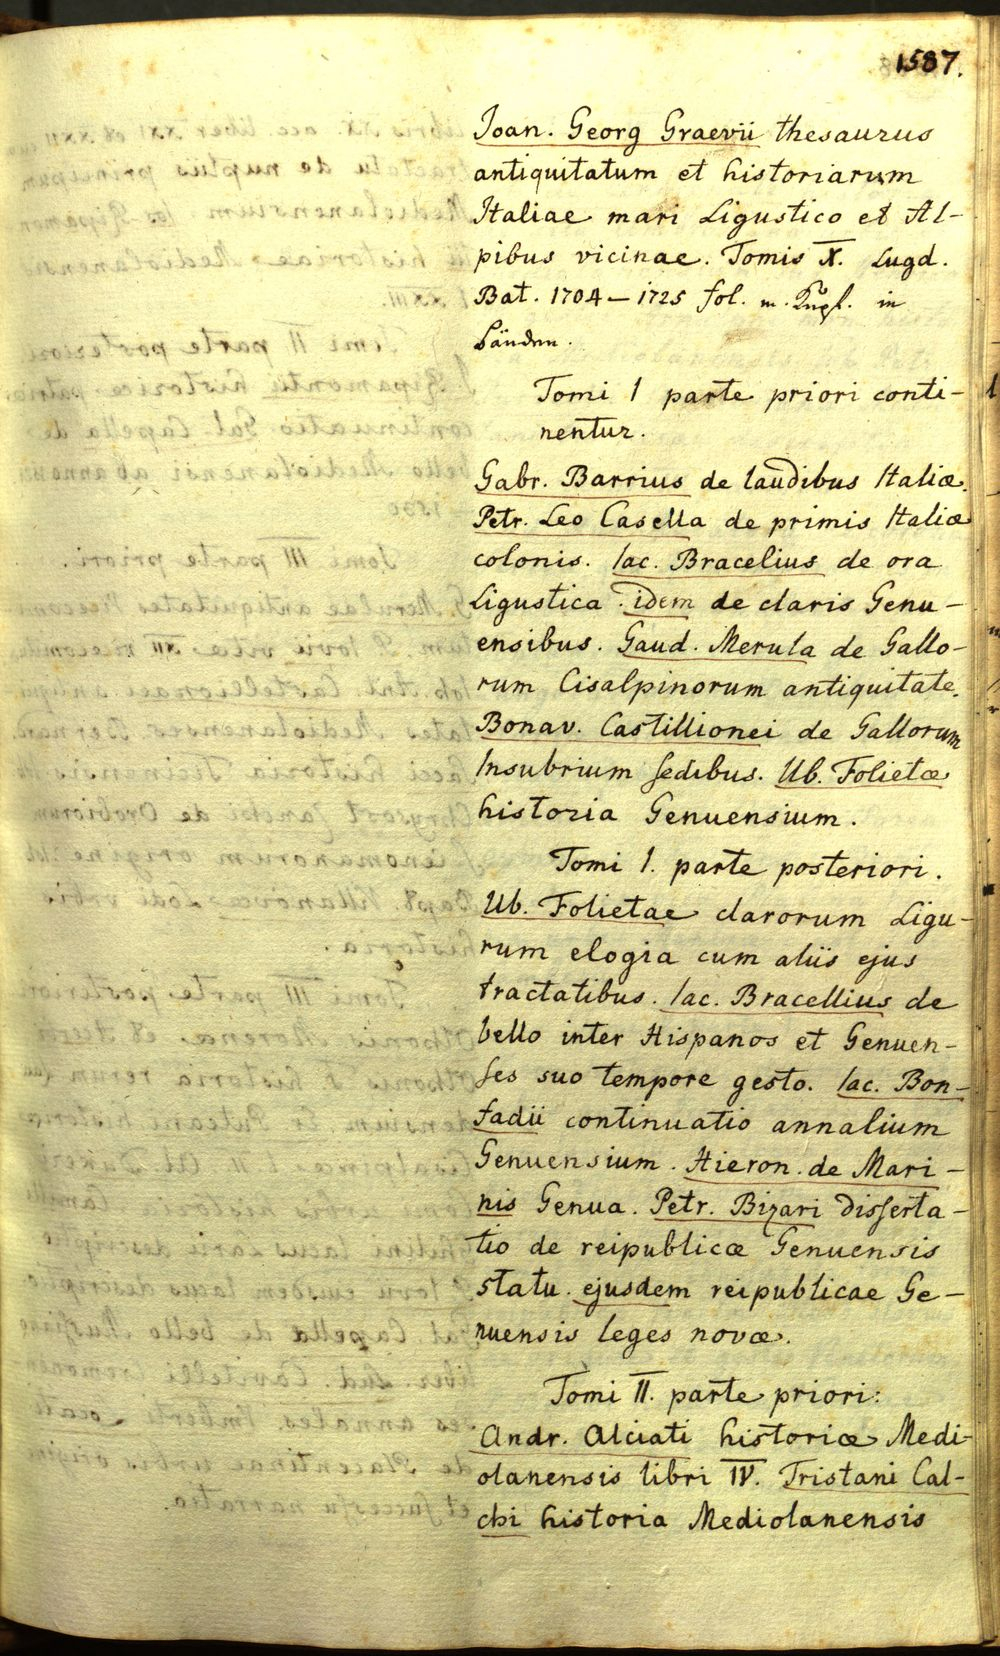 1587.
Joan. Georg Graevii thesaurus
antiquitatum et historiarum
Italiae mari Ligustico et Al-
pibus vicinae. Tomis X. Lugd.
Bat. 1704 – 1725 fol. m. Kupf. in
Bänden.
Tomi I parte priori conti-
nentur.
Gabr. Barrius de laudibus Italiæ.
Petr. Leo Casella de primis Italiæ
colonis. Iac. Bracelius de ora
Ligustica. idem de claris Genu-
ensibus. Gaud. Merula de Gallo-
rum Cisalpinorum antiquitate.
Bonav. Castillionei de Gallorum
Insubrium sedibus. Ub. Folietæ
historia Genuensium.
Tomi I. parte posteriori.
Ub. Folietae clarorum Ligu-
rum elogia cum aliis ejus
tractatibus. Iac. Bracellius de
bello inter Hispanos et Genuen-
ses suo tempore gesto. Iac. Bon-
fadii continuatio annalium
Genuensium. Hieron. de Mari-
nis Genua. Petr. Bizari disserta-
tio de reipublicæ Genuensis
statu. ejusdem reipublicae Ge-
nuensis leges novæ.
Tomi II. parte priori:
Andr. Alciati historiæ Medi-
olanensis libri IV. Tristani Cal-
chi historia Mediolanensis